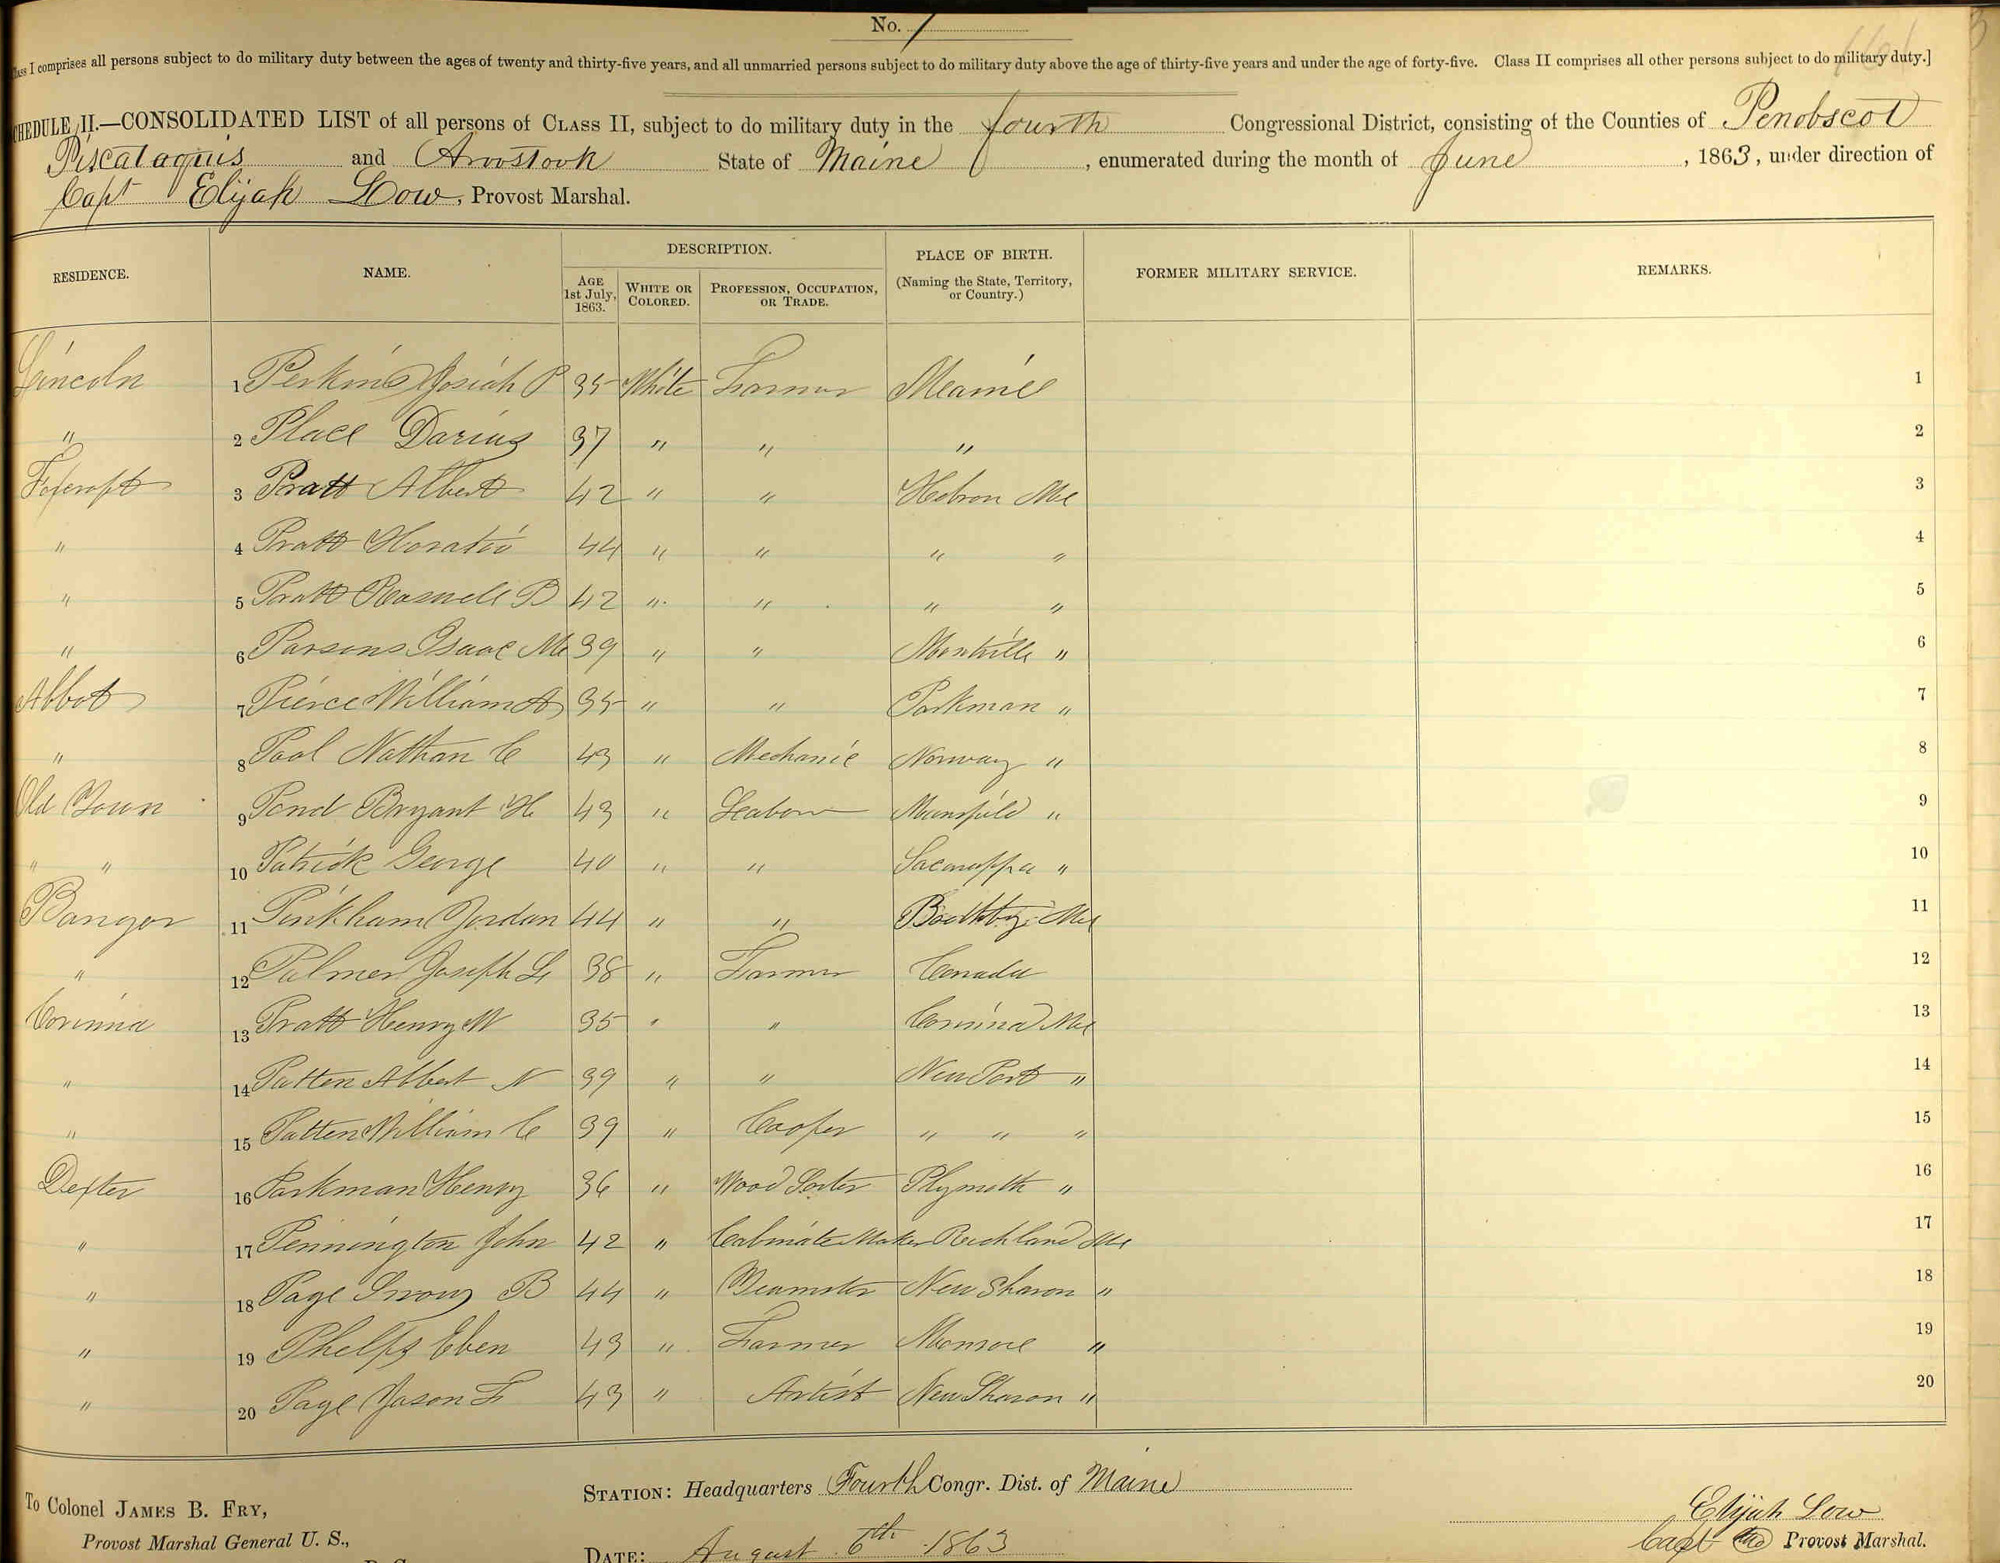 No. 1
Class I comprises all persons subject to do military duty between the ages of twenty and thirty-five years, and all unmarried persons subject to do military duty above the age of thirty-five years and under the age of forty-five. Class II comprises all other persons subject to do military duty.]
SCHEDULE II.—CONSOLIDATED LIST of all persons of CLASS II, subject to do military duty in the fourth Congressional District, consisting of the Counties of Penobscot
Piscataquis and Aroostook State of Maine, enumerated during the month of June, 1863, under direction of
Capt Elijah Low, Provost Marshal.
RESIDENCE. NAME. DESCRIPTION. PLACE OF BIRTH. FORMER MILITARY SERVICE. REMARKS.
AGE 1st July, 1863. WHITE OR COLORED. PROFESSION, OCCUPATION, OR TRADE. (Naming the State, Territory, or Country.)
Lincoln 1 Perkins Josiah P 35 White Farmer Maine 1
" 2 Place Darius 37 " " " 2
Foxcroft 3 Pratt Albert 42 " " Hebron Me 3
" 4 Pratt Horatio 44 " " " " 4
" 5 Pratt Roswell B 42 " " " " 5
" 6 Parsons Isaac M 39 " " Montville " 6
Abbot 7 Pierce William A 35 " " Parkman " 7
" 8 Pool Nathan C 43 " Mechanic Norway " 8
Old Town 9 Pond Bryant H 43 " Leabour " 9
" " 10 Patrick George 40 " " Sacarappa " 10
Bangor 11 Pinkham Jordan 44 " " Boothby Me 11
" 12 Palmer Joseph L 38 " Farmer Canada 12
Corinna 13 Pratt Henry W 35 " " Corinna Me 13
" 14 Patten Albert N 39 " " New Port " 14
" 15 Patten William C 39 " Cooper " " " 15
Dexter 16 Parkman Henry 36 " Wood Sorter Plymoth " 16
" 17 Pennington John 42 " Cabinate Maker Richland Me 17
" 18 Page B 44 " Teamster New Sharon " 18
" 19 Phelps Eben 43 " Farmer Monroe " 19
" 20 Page Jason F 43 " Artist New Sharon " 20
To Colonel JAMES B. FRY,
Provost Marshal General U. S.,
STATION: Headquarters Fourth Congr. Dist. of Maine
DATE: August 6th 1863
Elijah Low
Capt Provost Marshal.